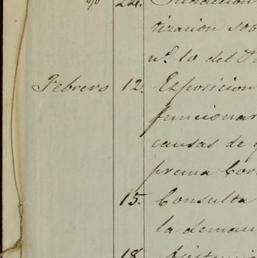 24.
tización sob
nº 10 del
Febrero 12. Exposicion
funcionar
causas de
prema Cor
15. Consulta
la deman
18.